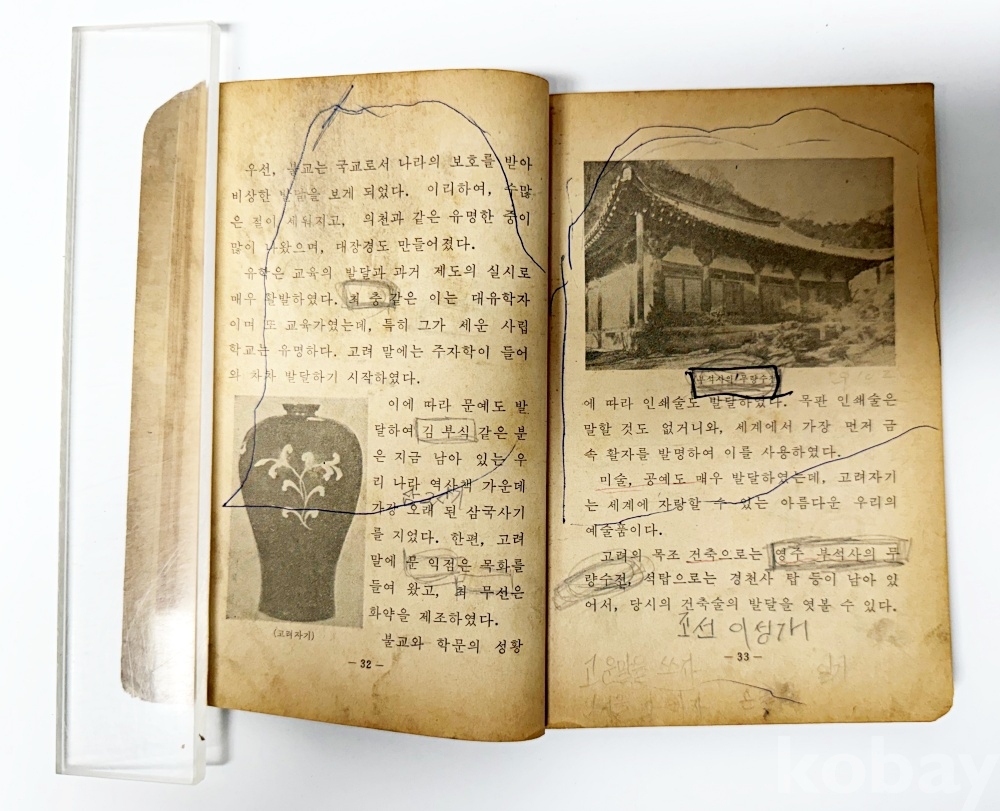 우선, 불교는 국교로서 나라의 보호를 받아
비상한 발달을 보게 되었다. 이리하여, 수많
은 절이 세워지고, 의천과 같은 유명한 중이
많이 나왔으며, 대장경도 만들어졌다.
유학은 교육의 발달과 과거 제도의 실시로
매우 활발하였다. 최 충 같은 이는 대유학자
이며 또 교육가였는데, 특히 그가 세운 사립
학교는 유명하다. 고려 말에는 주자학이 들어
와 차차 발달하기 시작하였다.
이에 따라 문예도 발
달하여 김 부식 같은 분
은 지금 남아 있는 우
리 나라 역사책 가운데
가장 오래 된 삼국사기
를 지었다. 한편, 고려
말에 문 익점은 목화를
들여 왔고, 최 무선은
화약을 제조하였다.
(고려자기)
불교와 학문의 성황
— 32 —
부석사의 무량수전
에 따라 인쇄술도 발달하였다. 목판 인쇄술은
말할 것도 없거니와, 세계에서 가장 먼저 금
속 활자를 발명하여 이를 사용하였다.
미술, 공예도 매우 발달하였는데, 고려자기
는 세계에 자랑할 수 있는 아름다운 우리의
예술품이다.
고려의 목조 건축으로는 영주 부석사의 무
량수전, 석탑으로는 경천사 탑 등이 남아 있
어서, 당시의 건축술의 발달을 엿볼 수 있다.
조선 이성개
— 33 —
고운말을 쓰자
kobay